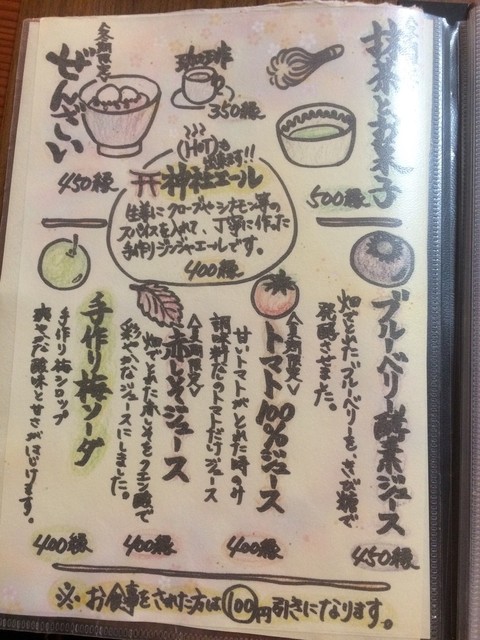 抹茶とお菓子
500縁
珈琲
350縁
ぜんざい
450縁
(HOT)も
出来ます!!
神社エール
生姜にクローブやシナモン等の
スパイスを入れて、丁寧に作った
手作りジンジャエールです。
400縁
ブルーベリー酵素ジュース
畑でとれたブルーベリーを、きび糖で
発酵させました。
450縁
トマト100%ジュース
甘いトマトがとれた時のみ
調味料なのトマトだけジュース
400縁
赤しそジュース
畑でとれた赤しそをクエン酸で
彩やかなジュースにしました。
400縁
手作り梅ソーダ
手作り梅シロップ
爽やかな酸味と甘さがはじけます。
400縁
※お食事をされた方は100円引きになります。